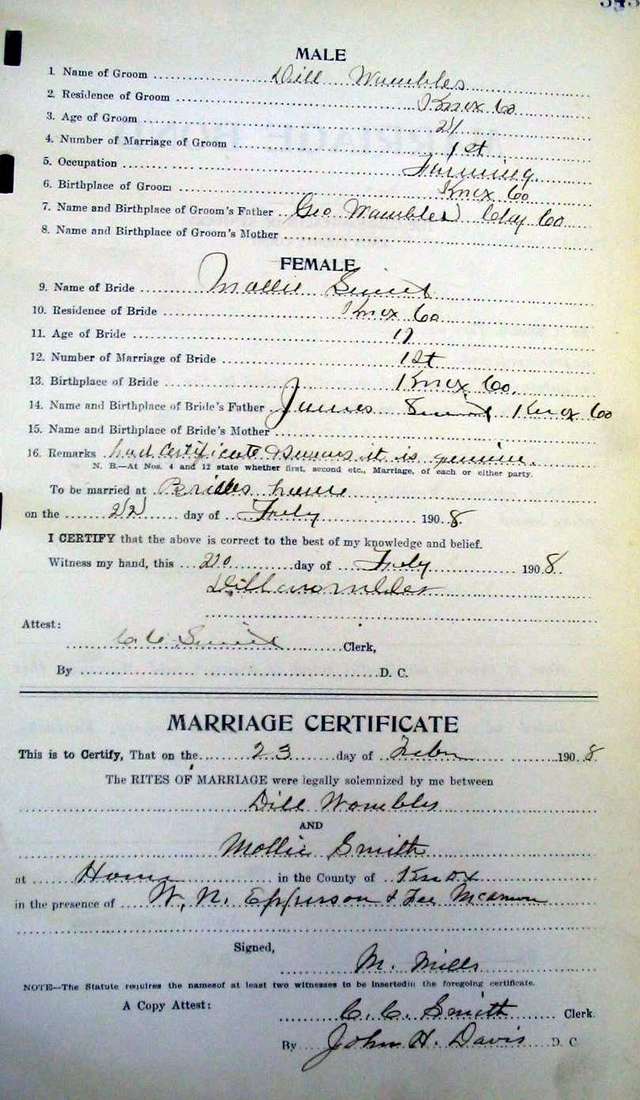 343
MALE
1. Name of Groom Dill Wambles
2. Residence of Groom Knox Co
3. Age of Groom 21
4. Number of Marriage of Groom 1st
5. Occupation Farming
6. Birthplace of Groom Knox Co
7. Name and Birthplace of Groom's Father Geo Wambles Clay Co
8. Name and Birthplace of Groom's Mother
FEMALE
9. Name of Bride Mollie Smith
10. Residence of Bride Knox Co
11. Age of Bride 17
12. Number of Marriage of Bride 1st
13. Birthplace of Bride Knox Co.
14. Name and Birthplace of Bride's Father James Smith Knox Co
15. Name and Birthplace of Bride's Mother
16. Remarks had certificate & swears it is genuine.
N. B.—At Nos. 4 and 12 state whether first, second etc., Marriage, of each or either party.
To be married at Brides home
on the 22 day of Feby 1908.
I CERTIFY that the above is correct to the best of my knowledge and belief.
Witness my hand, this 20 day of Feby 1908
Dill wombles
Attest:
C. C. Smith Clerk,
By D. C.
MARRIAGE CERTIFICATE
This is to Certify, That on the 23 day of Febr 1908
The RITES OF MARRIAGE were legally solemnized by me between
Dill Wombles
AND
Mollie Smith
at Home in the County of Knox
in the presence of W. N. Epperson & Lee
Signed,
M. Mills
NOTE—The Statute requires the namesof at least two witnesses to be insertedin the foregoing certificate.
A Copy Attest: C. C. Smith Clerk.
By John H. Davis D. C